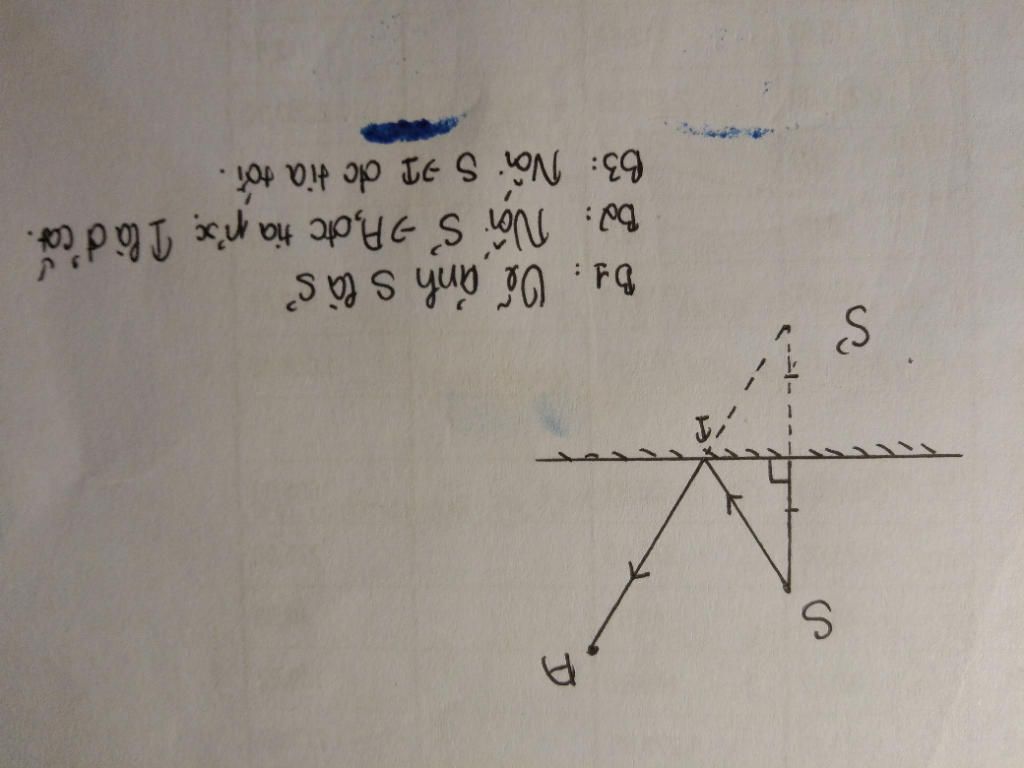 A
S
I
S'
B1: Vẽ ảnh S là S'
B2: Nối S' → A, đc tia p'x'. I là đ' cắt.
B3: Nối S → I đc tia tới.